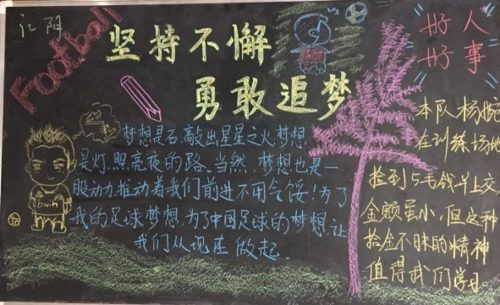 江阴
Football
坚持不懈
勇敢追梦
梦想是石,敲出星星之火.梦想
是灯,照亮夜的路.当然,梦想也是一
股动力,推动着我们前进,不用气馁!为了
我的足球梦想,为了中国足球的梦想,让
我们从现在做起.
"好人
好事"
本队杨
在训练场地
捡到5毛钱并上交
金额虽小,但这种
拾金不昧的精神
值得我们学习